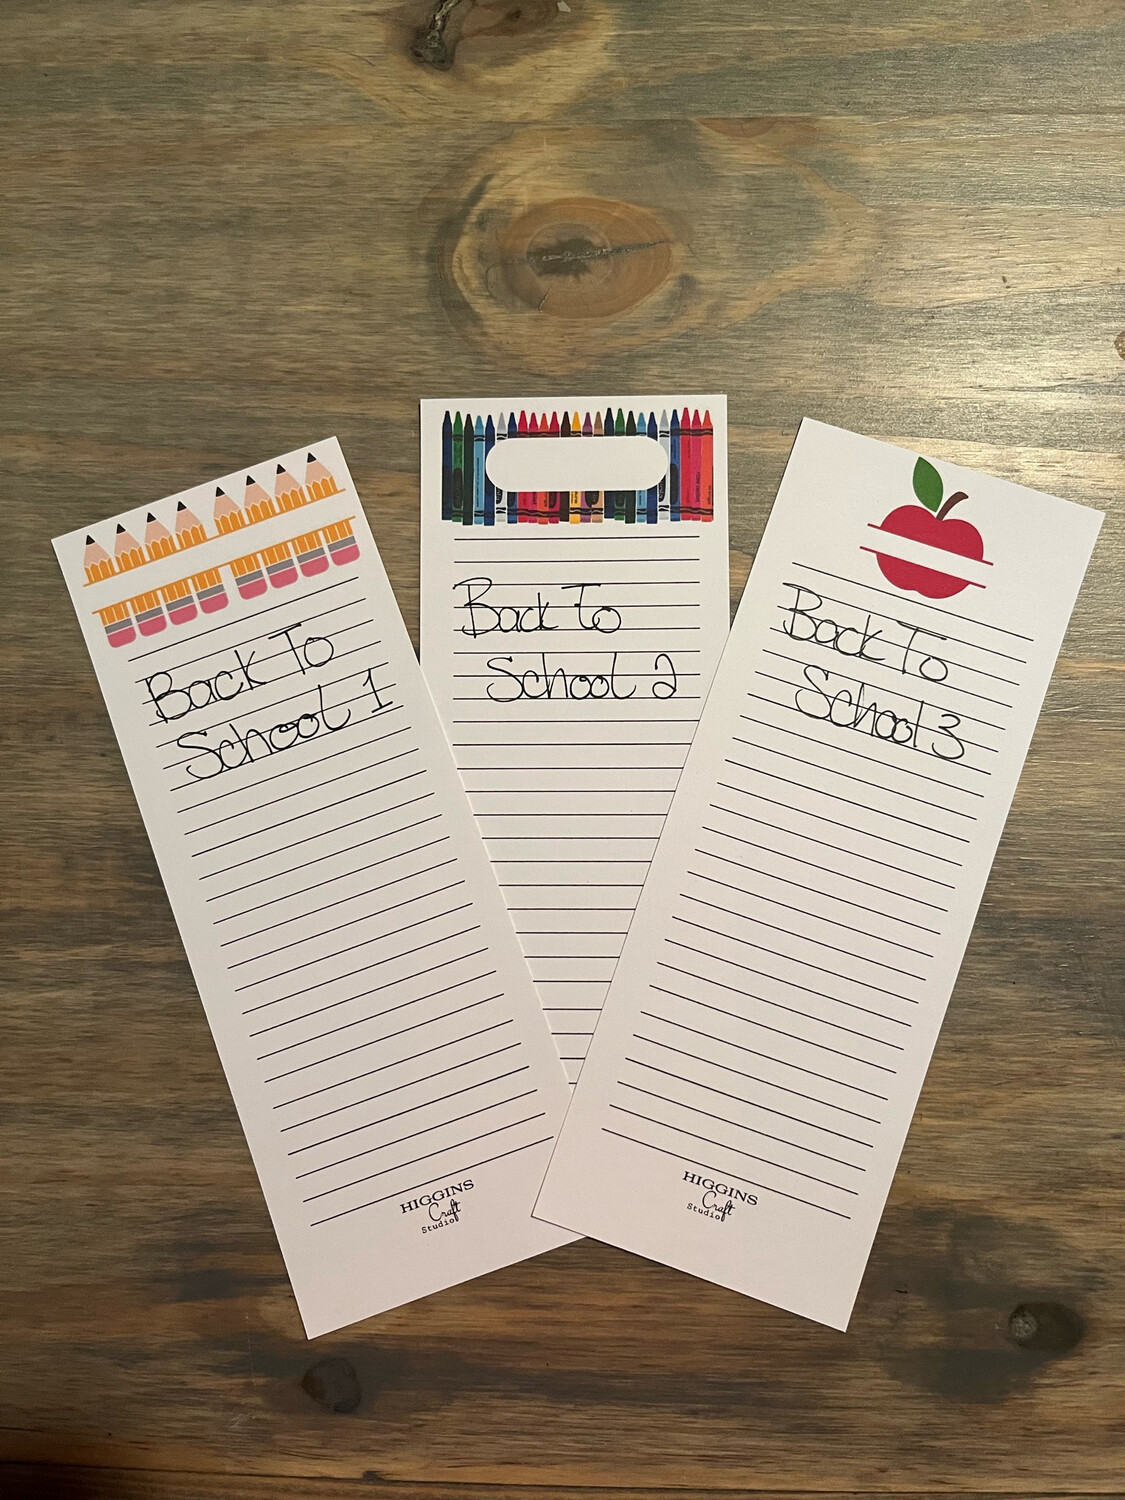 Back To
School 1
HIGGINS
Craft
Studio
Back To
School 2
Back To
School 3
HIGGINS
Craft
Studio